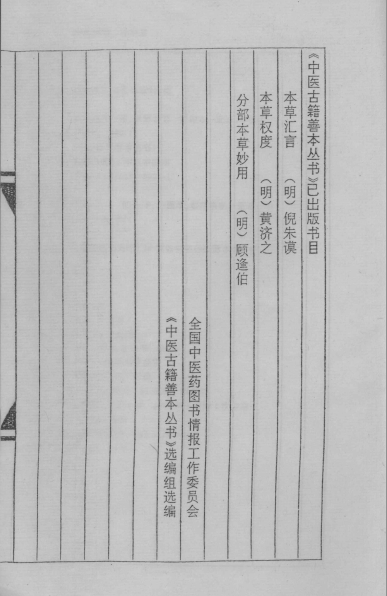 《中医古籍善本丛书》已出版书目
本草汇言 （明）倪朱谟
本草权度 （明）黄济之
分部本草妙用 （明）顾逢伯
全国中医药图书情报工作委员会
《中医古籍善本丛书》选编组选编